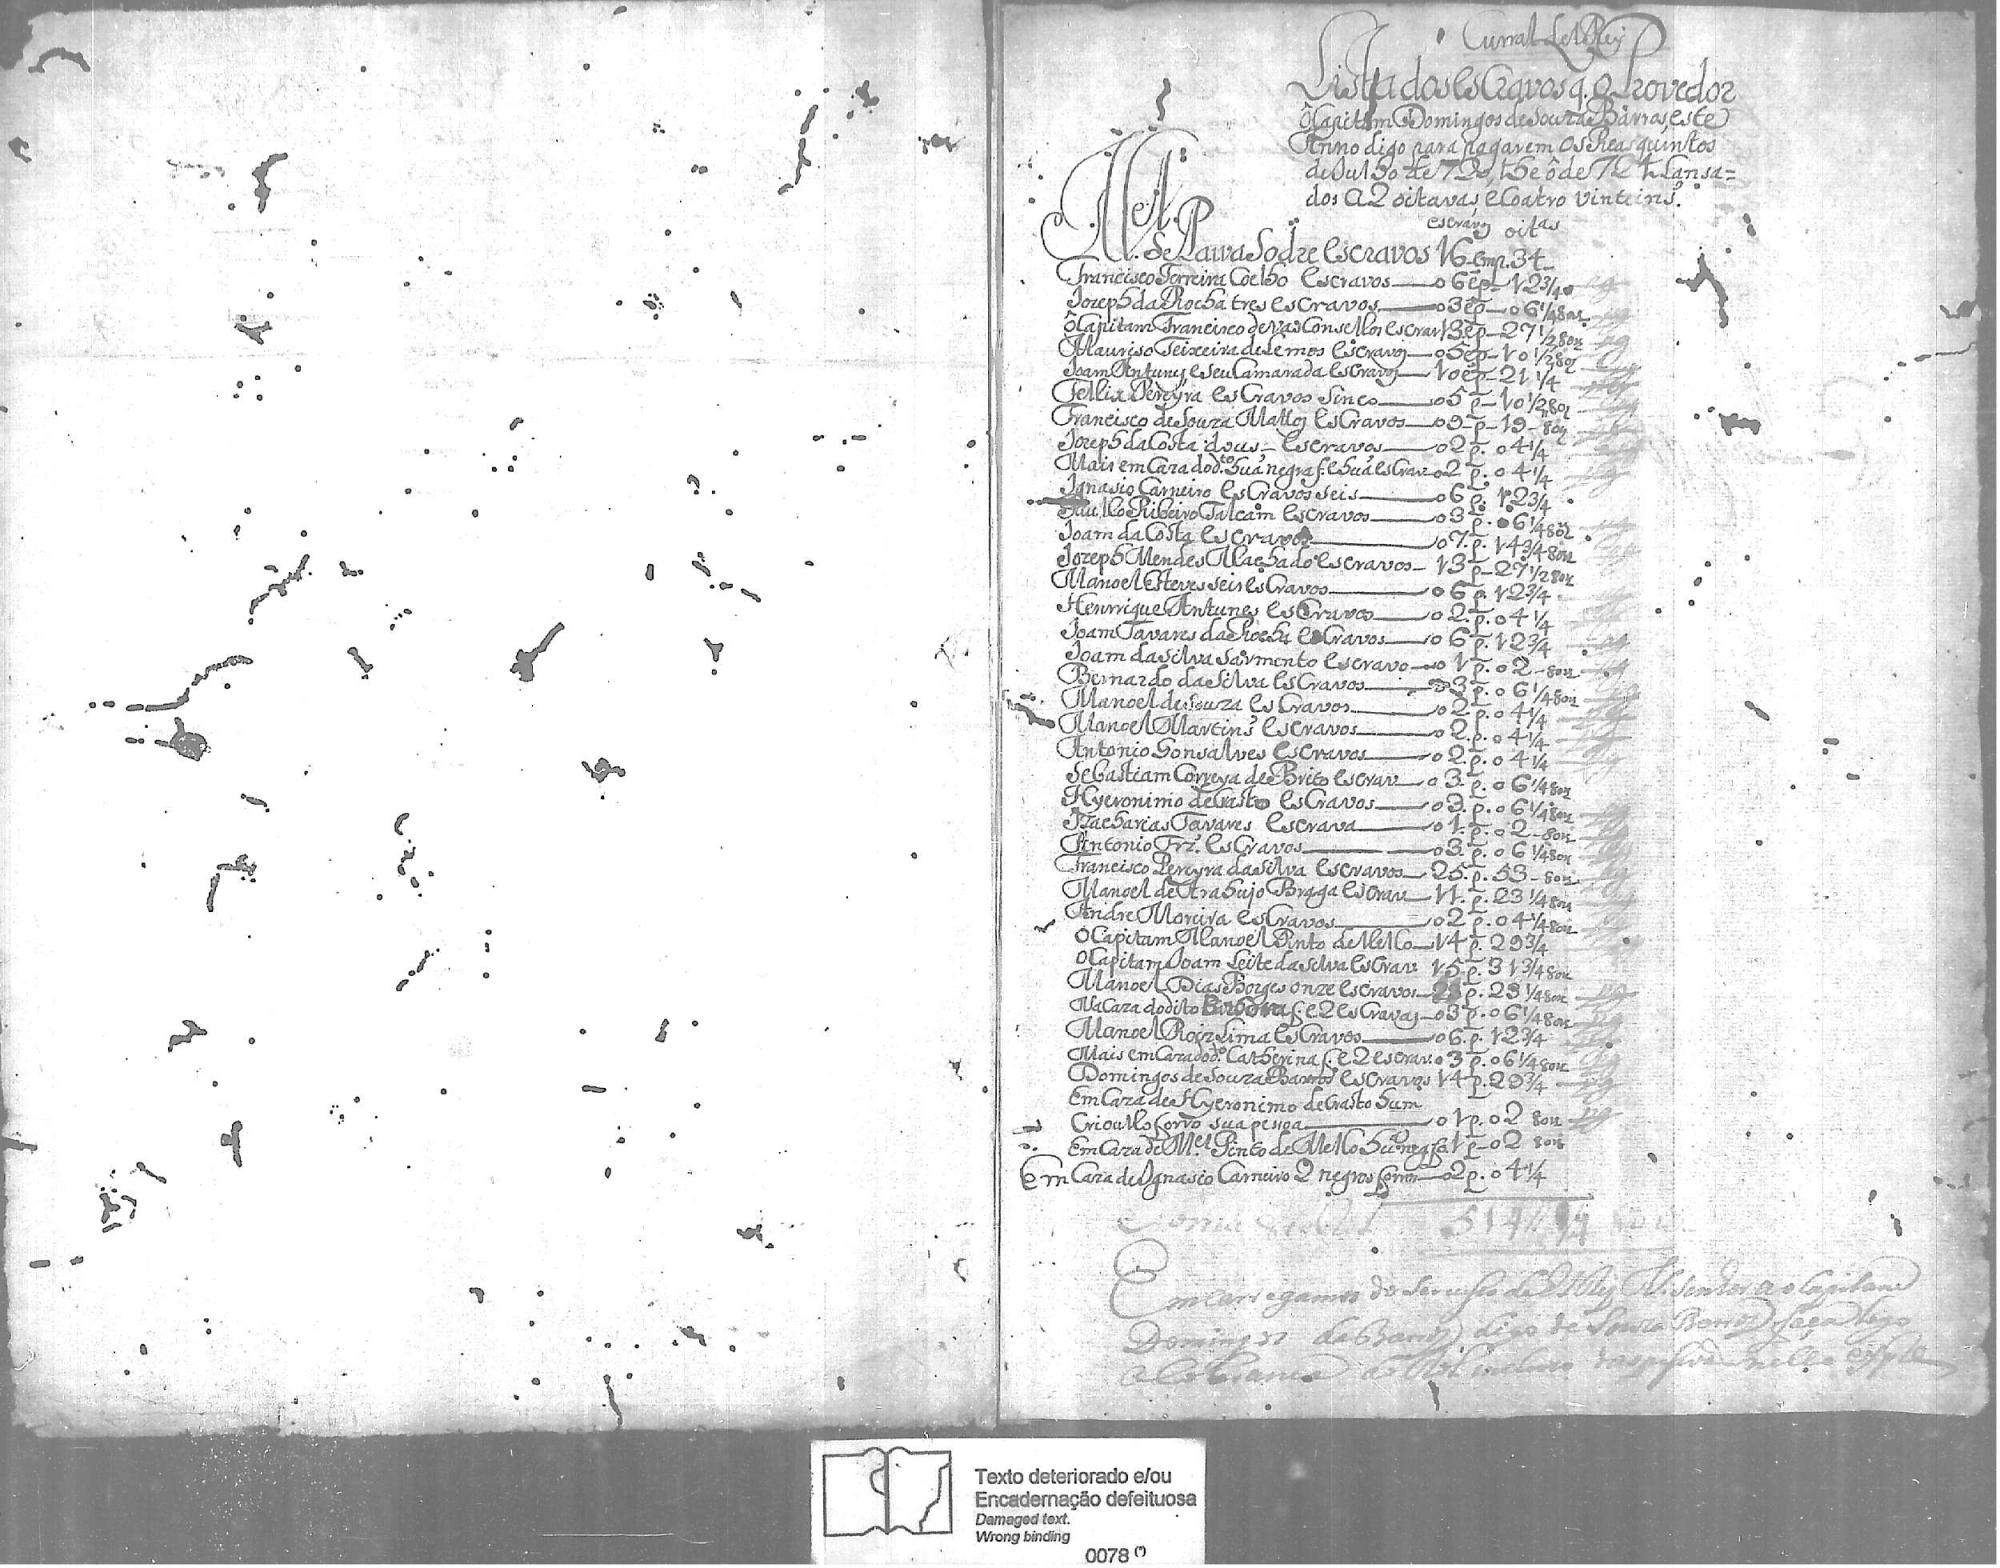 Curral del Rey
Lista dos esCravos q. o Provedor
o Capitam Domingos de Souza Barros este
Anno digo para pagarem os Reas quintos
de Julho de 723 the o de 724 Lansa=
dos a 2 oitavas e Coatro vinteins.
escravs oitas
Mel. de Paiva Sodre escravos 16 emp. 34
Francisco Ferreira Coelho escravos — 06 ep — 12 3/4 pg
Jozeph da Rocha tres esCravos — 03 ep — 06 1/4 8on pg
o Capitam Francisco de VasConsellos escrav 13 ep — 27 1/2 8on pg
Mauriso Teixeira de Lemos esCravos — 05 ep — 10 1/2 8on pg
Joam Antunes e seu Camarada esCravos — 10 ep — 21 1/4 pg
Fellix Pereyra esCravos sinco — 05 p — 10 1/2 8on pg
Francisco de Souza Mattos esCravos — 09 p — 19 — 8on pg
Jozeph da Costa dous — esCravos — 02 p. 04 1/4 pg
Mais em Caza do d.to hua negra f. e hua esCrav 02 p. 04 1/4 pg
Ignasio Carneiro esCravos seis — 06 p. 12 3/4
Paullo Ribeiro Falcam esCravos — 03 p. 06 1/4 8on pg
Joam da Costa esCravos — 07 p. 14 3/4 8on pg
Jozeph Mendes Machado esCravos — 13 p — 27 1/2 8on
Manoel Esteves seis esCravos — 06 p. 12 3/4
Henrrique Antunes esCravos — 02 p. 04 1/4
Joam Tavares da Rocha esCravos — 06 p. 12 3/4 pg
Joam da Silva Sarmento esCravo — 01 p. 02 — 8on pg
Bernardo da Silva esCravos — 03 p. 06 1/4 8on pg
Manoel de Souza esCravos — 02 p. 04 1/4 pg
Manoel Martins esCravos — 02 p. 04 1/4 pg
Antonio Gonsalves esCravos — 02 p. 04 1/4 pg
Sebastiam Correya de Brito escrav — 03 p. 06 1/4 8on
Hyeronimo de Casto esCravos — 03 p. 06 1/4 8on pg
Izacharias Tavares escrava — 01 p. 02 — 8on pg
Antonio Frz. esCravos — 03 p. 06 1/4 8on pg
Francisco Pereyra da Silva esCravos — 25 p. 53 — 8on pg
Manoel de Arahujo Braga escrav — 11 p. 23 1/4 8on pg
Andre Moreira esCravos — 02 p. 04 1/4 8on pg
o Capitam Manoel Pinto de Mello — 14 p. 29 3/4
o Capitam Joam Leite da Silva esCrav 15 p. 31 3/4 8on
Manoel Dias Borges onze escravos — p. 23 1/4 8on pg
Na Caza do dito f. e 2 esCravas — 03 p. 06 1/4 8on pg
Manoel Roiz Lima esCravos — 06 p. 12 3/4 pg
Mais em Caza do d.o Catherina f. e 2 escrav. 03 p. 06 1/4 8on pg
Domingos de Souza Barros esCravos 14 p. 29 3/4 pg
Em Caza de Hyeronimo de Casto hum
Crioullo forro sua pesoa — 01 p. 02 8on pg
Em Caza de Mel. Pinto de Mello hua neg. fa 1 p — 02 8on
Em Caza de Ignasio Carneiro 2 negros forros — 02 p. 04 1/4
Soma 514 1/4
Emcarregamos do Serviso de El Rey N. Senhor ao Capitam
Domingos da Barros digo de Souza Barros faça logo
a Cobransa
Texto deteriorado e/ou
Encadernação defeituosa
Damaged text.
Wrong binding
0078 (*)